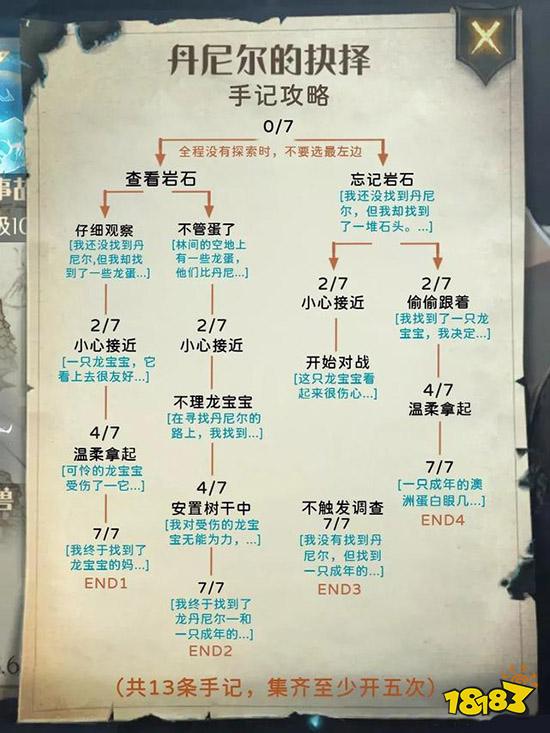 丹尼尔的抉择
手记攻略
0/7
全程没有探索时，不要选最左边
查看岩石
忘记岩石
[我还没找到丹尼
尔，但我却找到
了一堆石头。...]
仔细观察
[我还没找到丹
尼尔,但我却找
到了一些龙蛋...]
不管蛋了
[林间的空地上
有一些龙蛋，
他们比丹尼...]
2/7
小心接近
[一只龙宝宝，它
看上去很友好...]
2/7
小心接近
2/7
小心接近
2/7
偷偷跟着
[我找到了一只龙
宝宝，我决定...]
不理龙宝宝
[在寻找丹尼尔的
路上，我找到...]
开始对战
[这只龙宝宝看
起来很伤心...]
4/7
温柔拿起
4/7
温柔拿起
[可怜的龙宝宝
受伤了一它...]
4/7
安置树干中
[我对受伤的龙宝
宝无能为力，...]
7/7
[一只成年的澳
洲蛋白眼几...]
END4
不触发调查
7/7
[我没有找到丹
尼尔，但找到
一只成年的...]
END3
7/7
[我终于找到了
龙宝宝的妈...]
END1
7/7
[我终于找到了
龙丹尼尔一和
一只成年的...]
END2
（共13条手记，集齐至少开五次）
18183
事故
级10
兽
.6